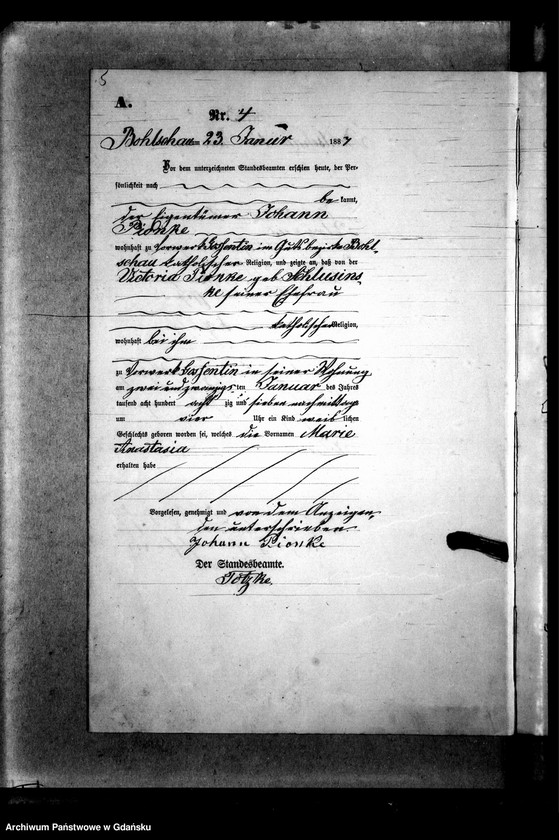 5
A.
Nr. 4
Bohlschau am 23. Januar 1887
Vor dem unterzeichneten Standesbeamten erschien heute, der Per-
sönlichkeit nach
be kannt,
der Eigentümer Johann
Pionke
wohnhaft zu Vorwerk im Gutsbezirke Bohl-
schau katholischer Religion, und zeigte an, daß von der
Victoria Pionke geb Schlusins-
ke seiner Ehefrau
katholischer Religion,
wohnhaft bei ihm
zu Vorwerk in seiner Wohnung
am zwei und zwanzigsten Januar des Jahres
tausend acht hundert acht zig und sieben nachmittags
um vier Uhr ein Kind weib lichen
Geschlechts geboren worden sei, welches die Vornamen Marie
Anastasia
erhalten habe
Vorgelesen, genehmigt und von dem Anzeigen-
den unterschrieben
Johann Pionke
Der Standesbeamte.
Totzke.
Archiwum Państwowe w Gdańsku